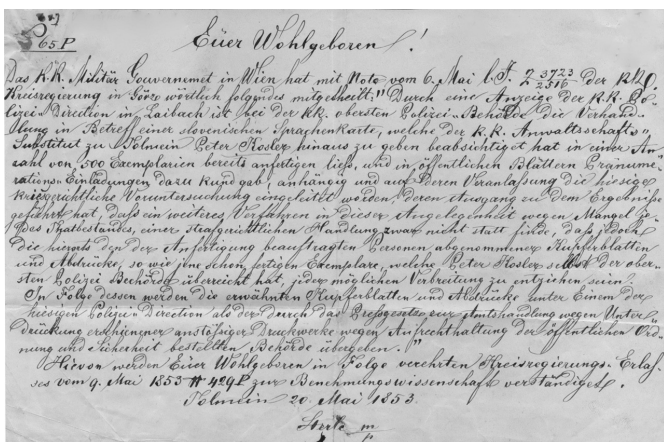 65 P
Euer Wohlgeboren!
Das K.K. Militär Gouvernemet in Wien hat mit Note vom 6. Mai l. J. Z 3723/2516 der K.K.
Kreisregierung in Görz wörtlich folgendes mitgetheilt: "Durch eine Anzeige der K.K. Po„
lizei-Direction in Laibach ist bei der K.K. obersten Polizei-Behörde die Verhand„
lung in Betreff einer slovenischen Sprachenkarte, welche der K.K. Anwaltschafts„
Substitut zu Tolmein Peter Kosler hinaus zu geben beabsichtiget hat in einer An„
zahl von 500 Exemplarien bereits anfertigen ließ, und in öffentlichen Blättern Pränume„
rations-Einladungen dazu kund gab, anhängig und auf deren Veranlassung die hiesige
kriegsrichtliche Voruntersuchung eingeleitet worden, deren Ausgang zu dem Ergebniße
geführt hat, daß ein weiteres Verfahren in dieser Angelegenheit wegen Mangel je„
des Thatbestandes, einer strafgerichtlichen Handlung zwar nicht statt finde, daß jedoch
die hiemit den der Anfertigung beauftragten Personen abgenommenen Kupferblatten
und Abdrücke, so wie jene schon fertigen Exemplare, welche Peter Kosler selbst der ober„
sten Polizei Behörde überreicht hat, jeder möglichen Verbreitung zu entziehen seien.
In Folge dessen werden die erwähnten Kupferblatten und Abdrücke unter Einem der
hiesigen Polizei-Direction als der durch das Preßgesetz zur Amtshandlung wegen Unter„
drückung erschienener anstößiger Druckwerke wegen Aufrechthaltung der öffentlichen Ord„
nung und Sicherheit bestellten Behörde übergeben."
Hievon werden Euer Wohlgeboren in Folge verehrten Kreisregierungs-Erlas„
ses vom 9. Mai 1853 # 429 P zur Benehmungswissenschaft verständiget.
Tolmein 20. Mai 1853.